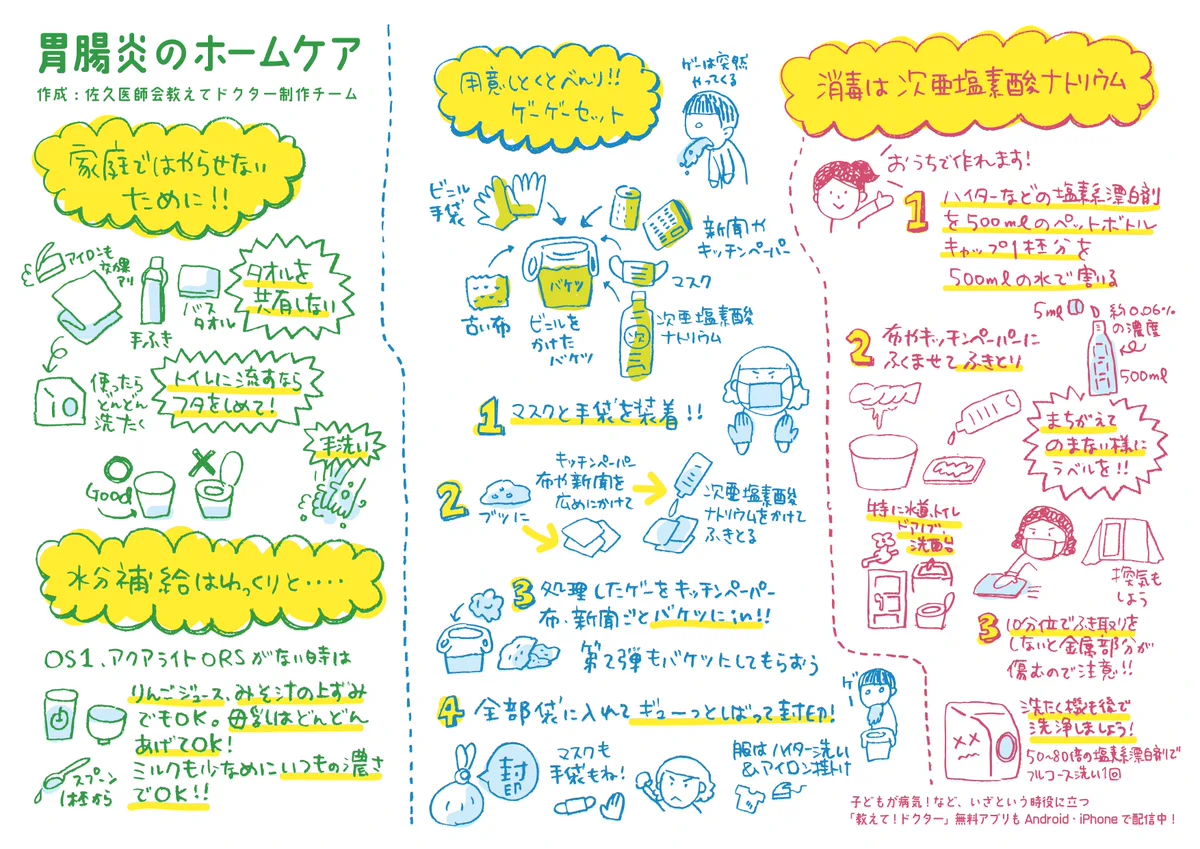 胃腸炎のホームケア
作成：佐久医師会教えてドクター制作チーム
家庭ではやらせない
ために!!
アイロンも
効果
アリ
手ふき
バス
タオル
タオルを
共有しない
使ったら
どんどん
洗たく
トイレに流すなら
フタをしめて!
Good
手洗い
水分補給はゆっくりと・・・・
OS1、アクアライトORSがない時は
りんごジュース、みそ汁の上ずみ
でもOK。母乳はどんどん
あげてOK!
ミルクも少なめにいつもの濃さ
でOK!!
スプーン
1杯から
用意しとくとべんり!!
ゲーゲーセット
ゲーは突然
やってくる
ビニル
手袋
新聞や
キッチンペーパー
マスク
バケツ
古い布
ビニルを
かけた
バケツ
次
次亜塩素酸
ナトリウム
1 マスクと手袋を装着!!
2
ブツに
キッチンペーパー
布や新聞を
広めにかけて
次亜塩素酸
ナトリウムをかけて
ふきとる
3 処理したゲーをキッチンペーパー
布、新聞ごとバケツにin!!
第2弾もバケツにしてもらおう
ゲー
4 全部袋に入れてギューっとしばって封印!
封印
マスクも
手袋もね!
服はハイター洗い
&アイロン掛け
消毒は次亜塩素酸ナトリウム
おうちで作れます!
1 ハイターなどの塩素系漂白剤
を500mlのペットボトル
キャップ1杯分を
500mlの水で割る
5ml
約0.06%
の濃度
500ml
2 布やキッチンペーパーに
ふくませてふきとり
まちがえて
のまない様に
ラベルを!!
特に水道、トイレ
ドアノブ、
洗面台
換気も
しよう
3 10分位でふき取りを
しないと金属部分が
傷むので注意!!
洗たく機も後で
洗浄しましょう!
50〜80倍の塩素系漂白剤で
フルコース洗い1回
子どもが病気！など、いざという時役に立つ
「教えて！ドクター」無料アプリも Android・iPhone で配信中！